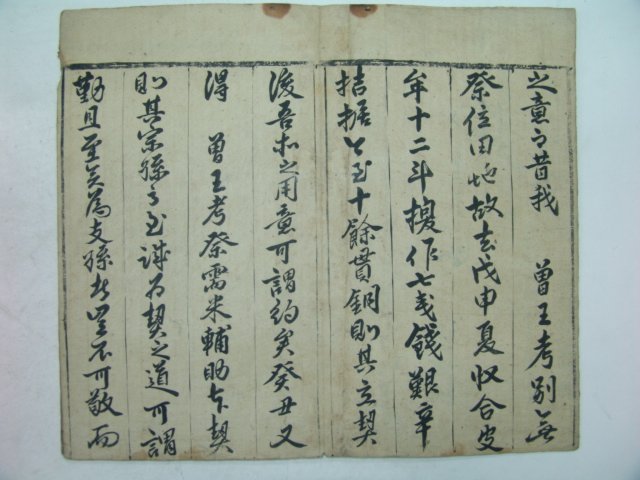 之意昔我 曾王考別無
祭位田地故去戊申夏收合皮
牟十二斗作七戔錢艱辛
拮据以至十餘貫銅則其立契
後吾之用意可謂約矣癸丑又
得 曾王考祭需米輔助本契
則其宗孫之至誠爲契之道可謂
勤且至矣爲支孫者豈不可敬而